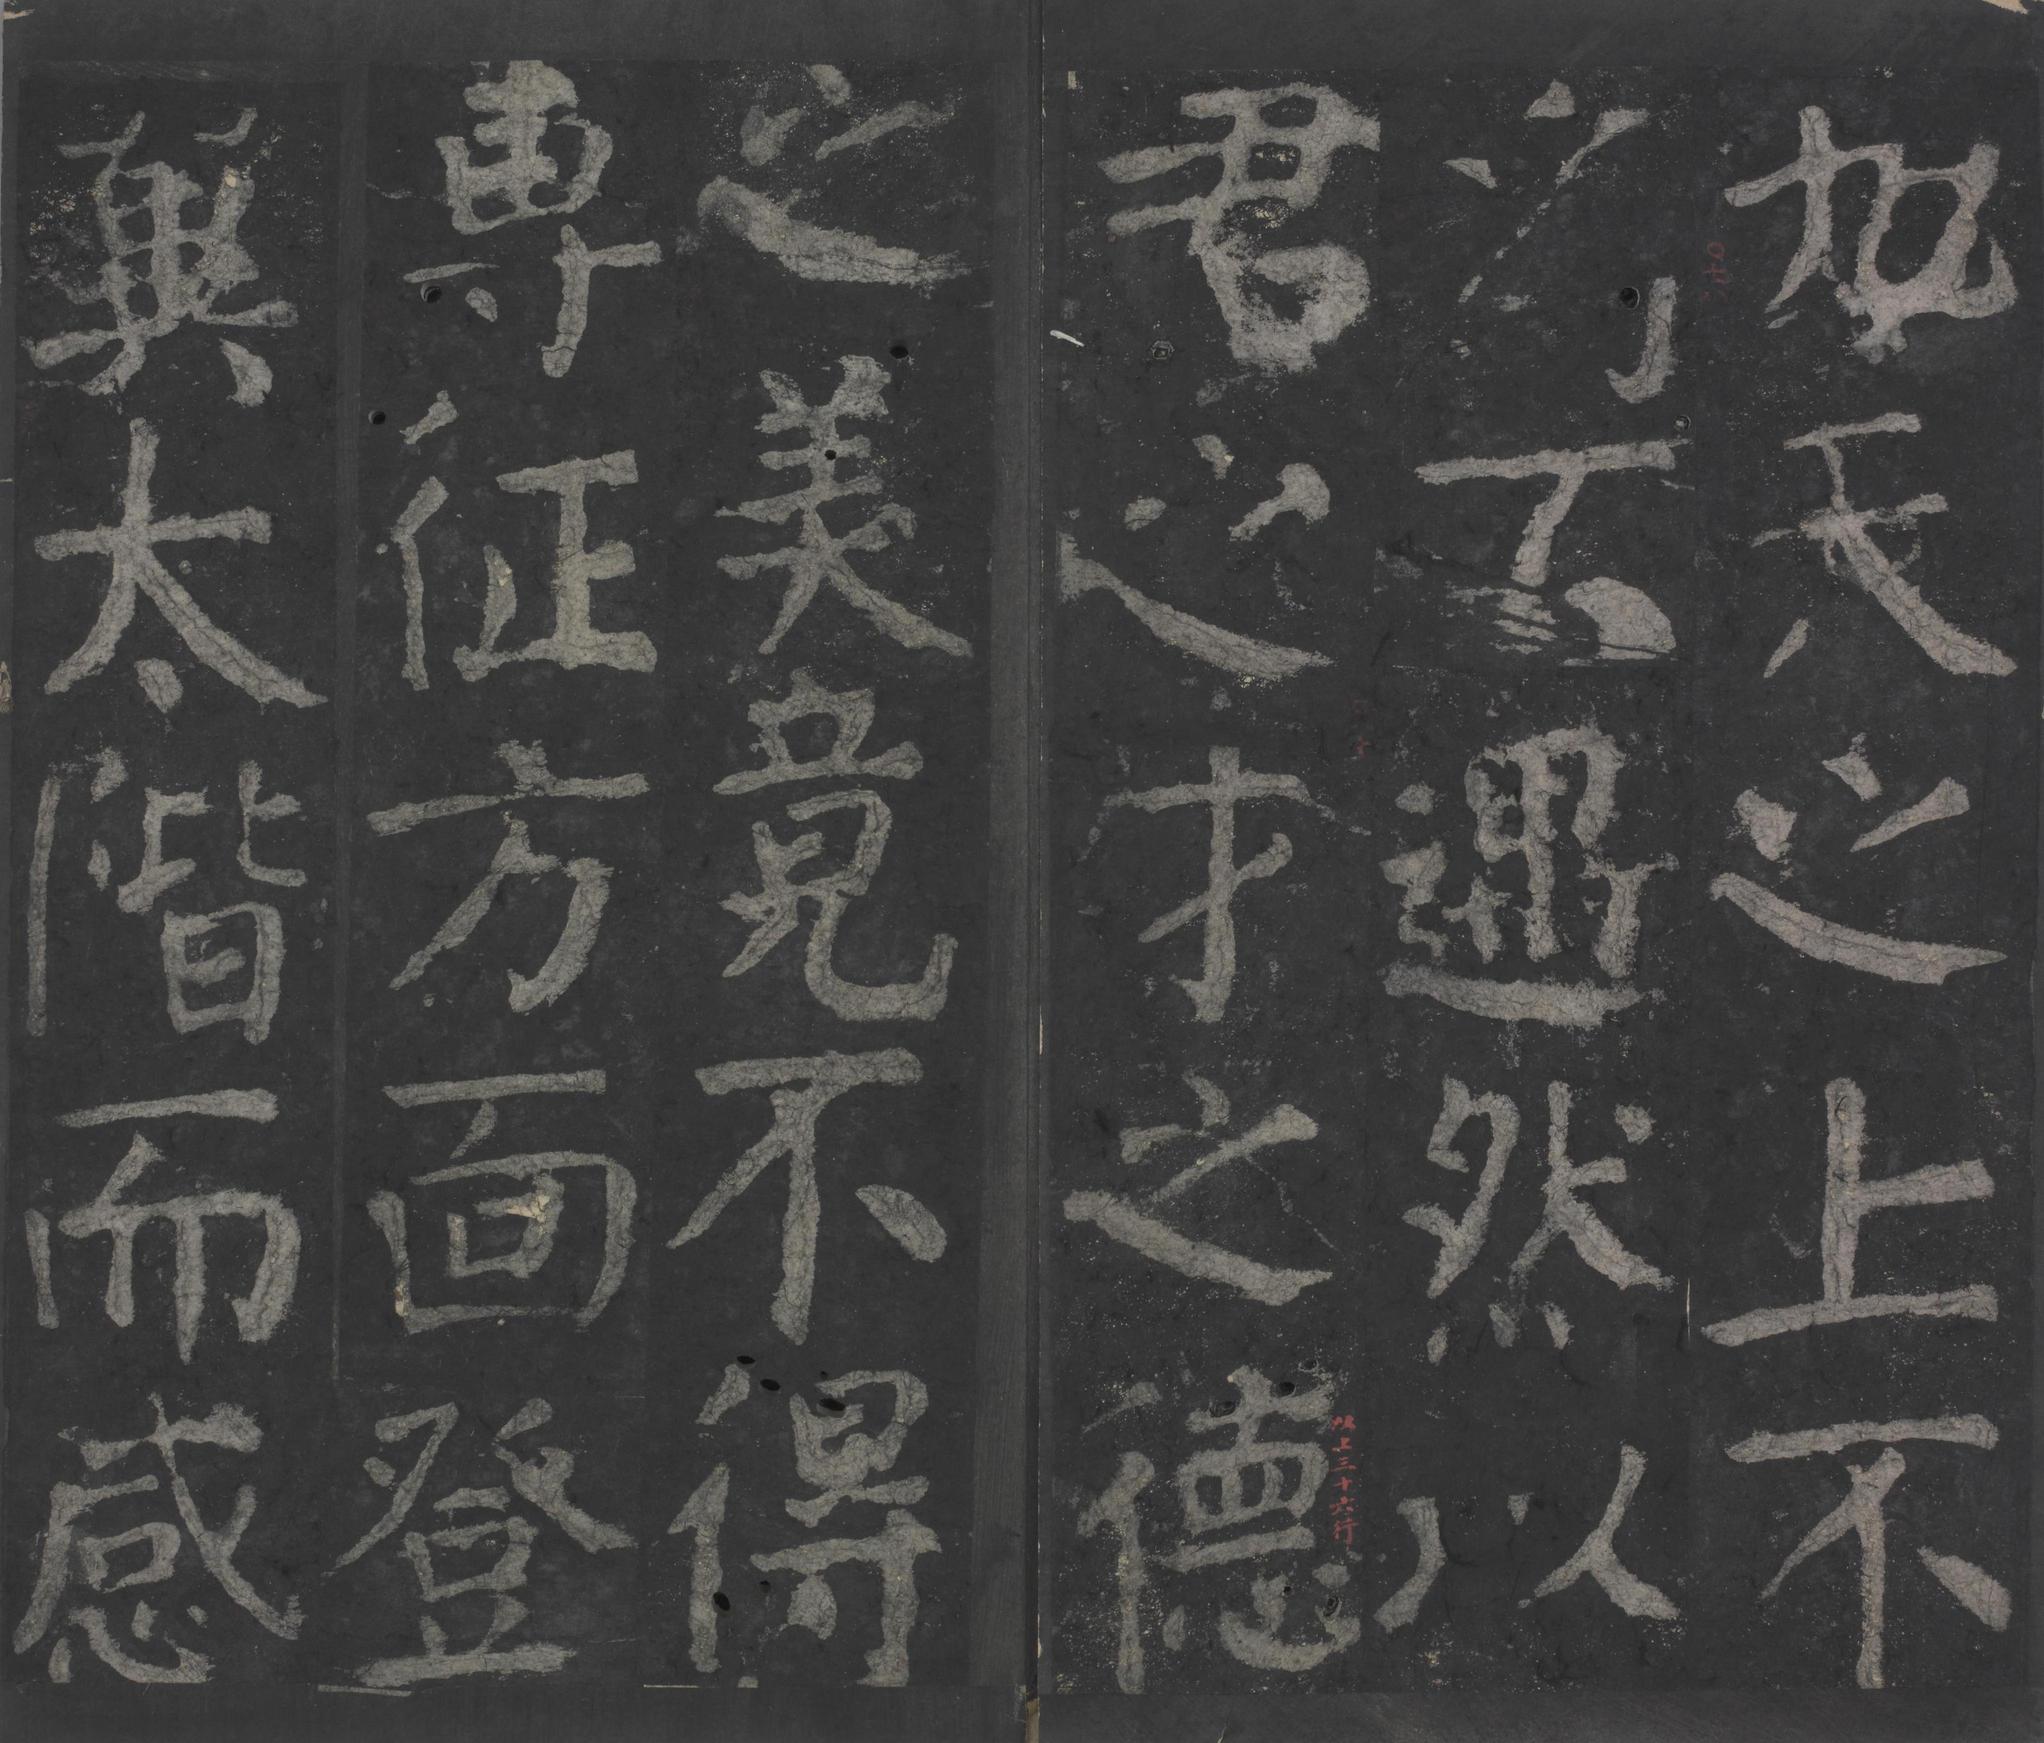 九天之上不
為不遇然以
君之才之德
之美竟不得
專征方面登
翼太階而感
以上三十六行